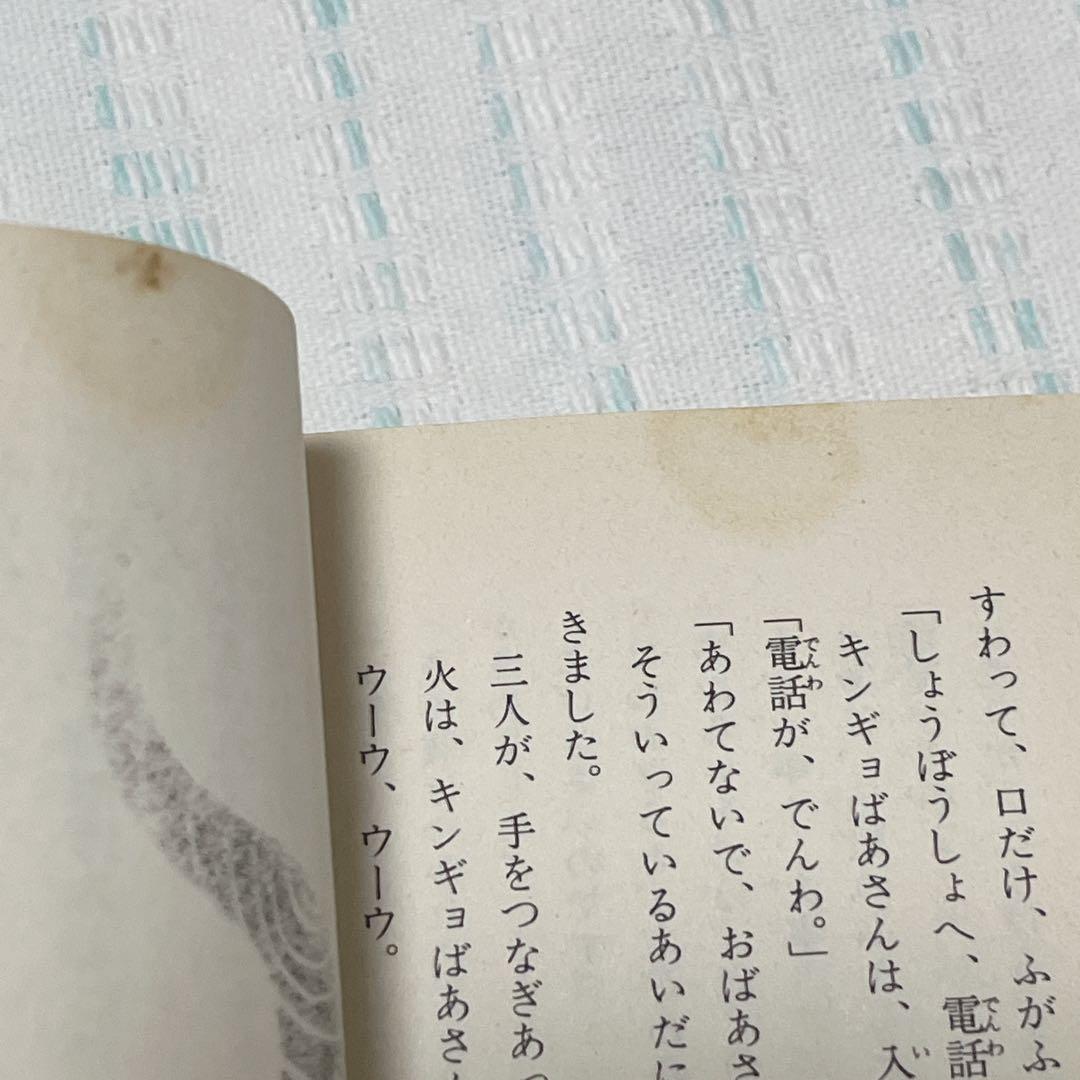 すわって、口だけ、ふがふ
「しょうぼうしょへ、電話
キンギョばあさんは、入
「電話が、でんわ。」
「あわてないで、おばあさ
そういっているあいだに
きました。
三人が、手をつなぎあっ
火は、キンギョばあさん
ウーウ、ウーウ。